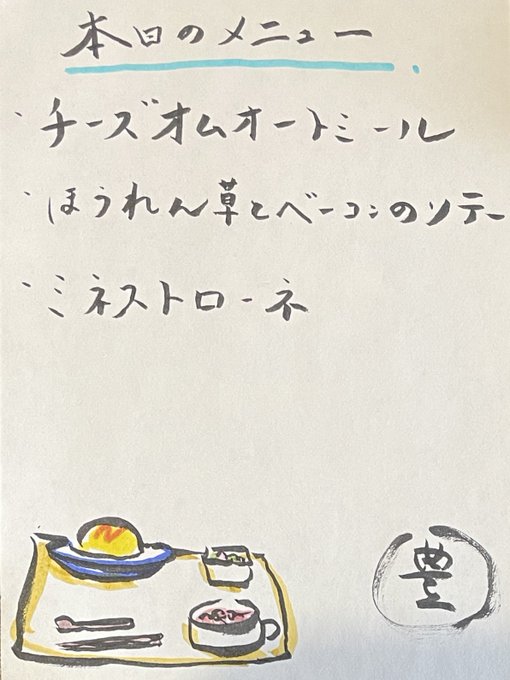 本日のメニュー
・チーズオムオートミール
・ほうれん草とベーコンのソテー
・ミネストローネ
豊